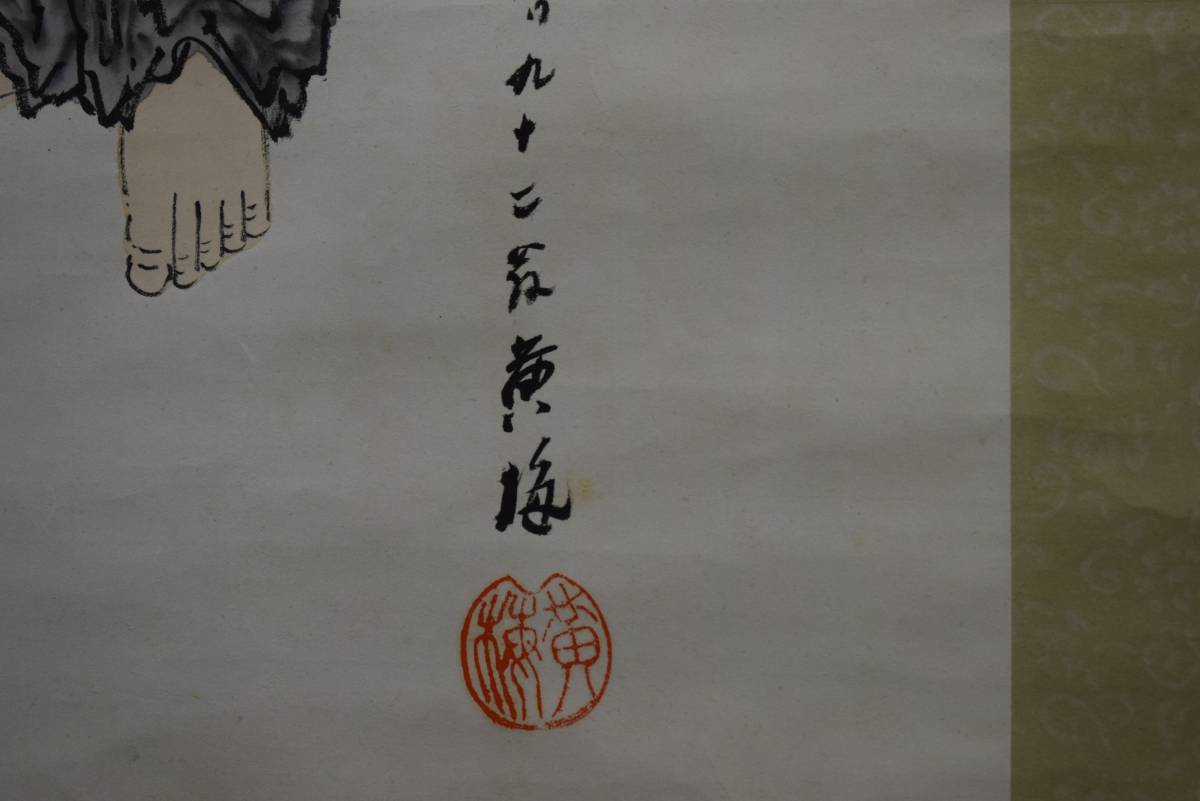 九十二叟黄梅
黄梅